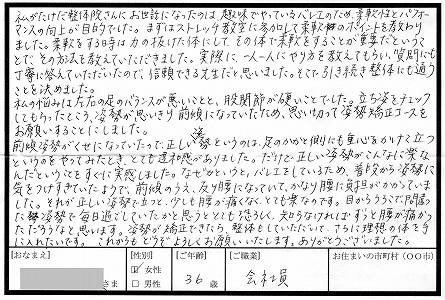 私がたけだ整体院さんにお世話になったのは、趣味でやっているバレエのため、柔軟性とパフォー
マンスの向上が目的でした。まずはストレッチ教室に参加して柔軟のポイントを教わり
ました。柔軟をする時は力の抜けた体にして、その体で柔軟をすることが重要だというこ
とで、その方法を教えていただきました。実際に、一人一人にやり方を教えてもらい、質問にも
丁寧に答えていただいたので、信頼できる先生だと思いました。そこで、引き続き整体にも通う
ことを決めました。
私の悩みは左右の足のバランスが悪いことと、股関節が硬いことでした。立ち姿をチェック
してもらったところ、姿勢が思いきり前傾になっていたため、思い切って姿勢矯正コースを
お願いすることにしました。
前傾姿勢がくせになっていたので、正しい姿勢というのは、足のかかと側にも重心をかけて立つ
というのをやってみたとき、とても違和感がありました。だけど、正しい姿勢がこんなに楽な
んだということをすぐに実感しました。なぜかというと、バレエをしているため、普段から姿勢に
気をつけすぎていたようで、前傾のうえ、反り腰になっていて、かなり腰に負担がかかっていま
した。それが、正しい姿勢で立つと、少しも腰が痛くなく、とても楽なのです。目からうろこで、間違っ
た姿勢で毎日過ごしていたかと思うととても恐ろしく、知らなければずっと腰が痛かっ
ただろうなと思います。姿勢が矯正できたら、整体もしていただいて、さらに理想の体を手
に入れたいです。これからもどうぞよろしくお願いいたします。ありがとうございました。
【おなまえ】 【性別】 【ご年齢】 【ご職業】 お住まいの市町村(○○市)
さま ☑女性 □男性 36歳 会社員